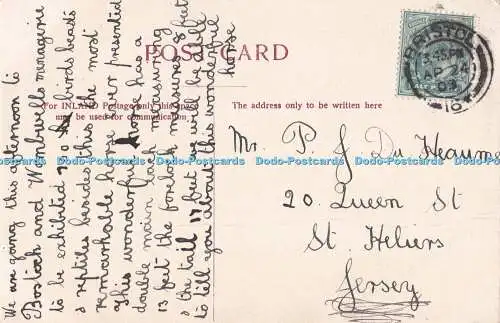 POST CARD
For INLAND Postage only this space
may be used for communication
The address only to be written here
BRISTOL
3.45 PM
AP 24
03
We are going this afternoon to
Bostock and Wombwells menagerie
to be exhibited 700 birds beasts
& reptiles besides this the most
remarkable horse ever presented
this wonderful horse has a
double main each measuring
13 feet the forelock measures 8 feet
& the tail 17 feet we will be able
to tell you about this wonderful
horse
Mr. P. J Du Heaume
20 Queen St
St Heliers
Jersey
Dodo-Postcards Dodo-Postcards Dodo-Postcards Dodo-Postcards